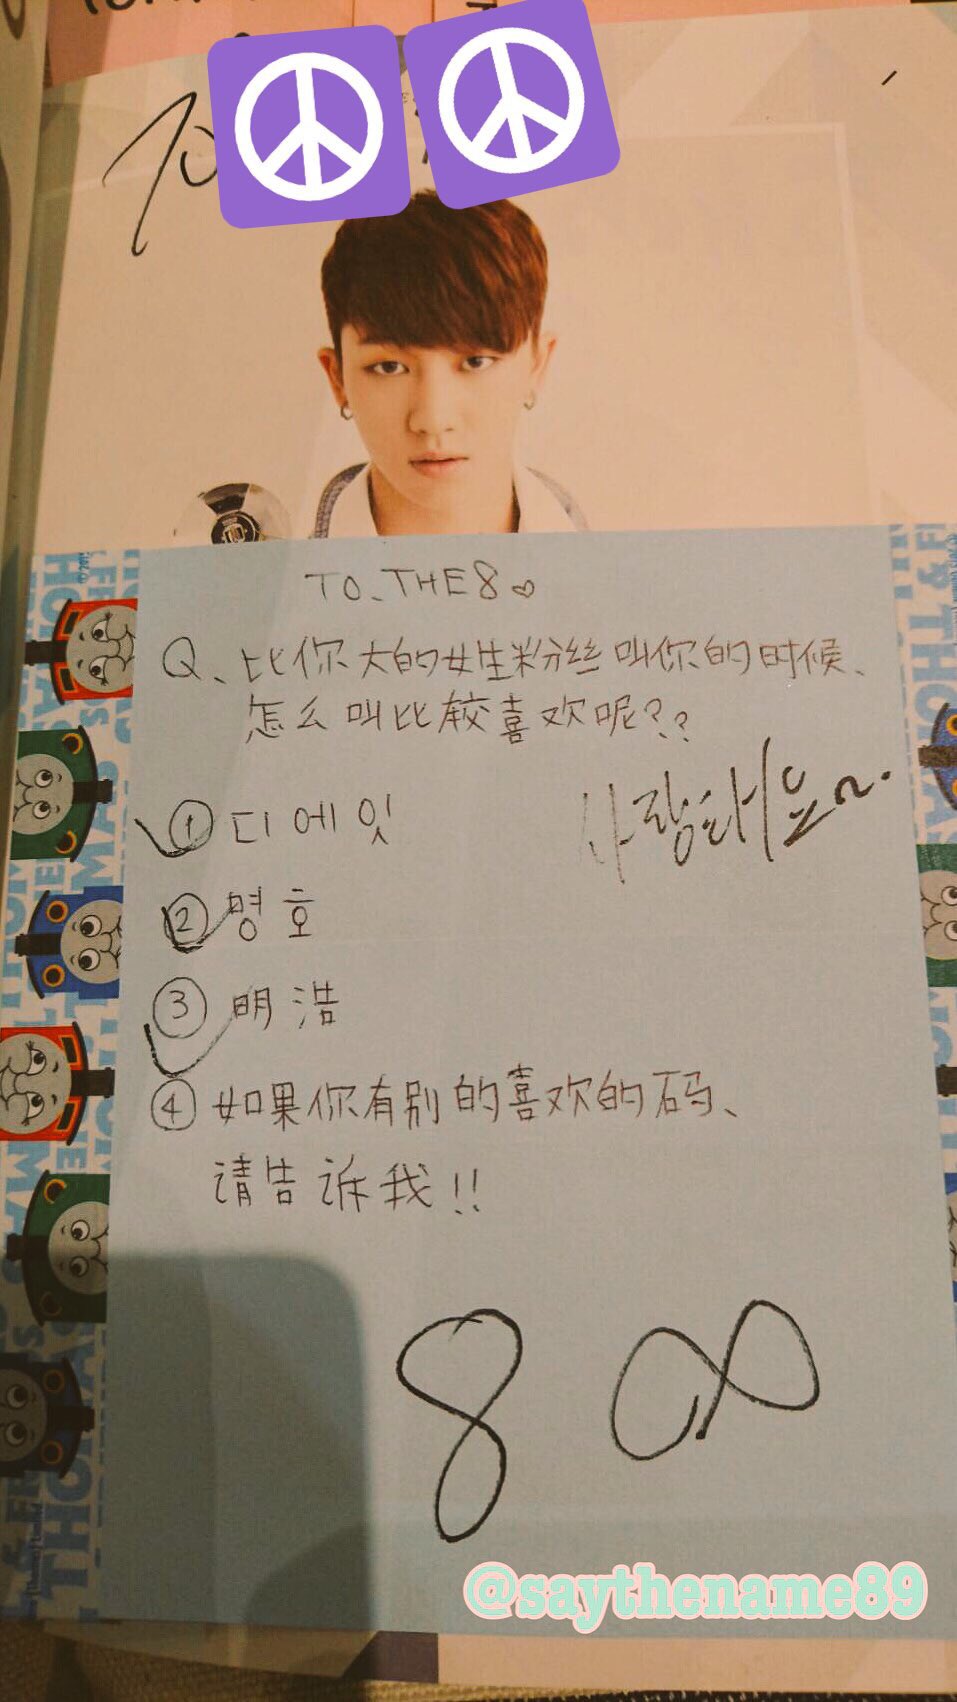 To
TO. THE8♡
Q、比你大的女生粉丝叫你的时候、
怎么叫比较喜欢呢??
① 디에잇
사랑해요~.
② 명호
③ 明浩
④ 如果你有别的喜欢的码、
请告诉我!!
8 8
@saythename89